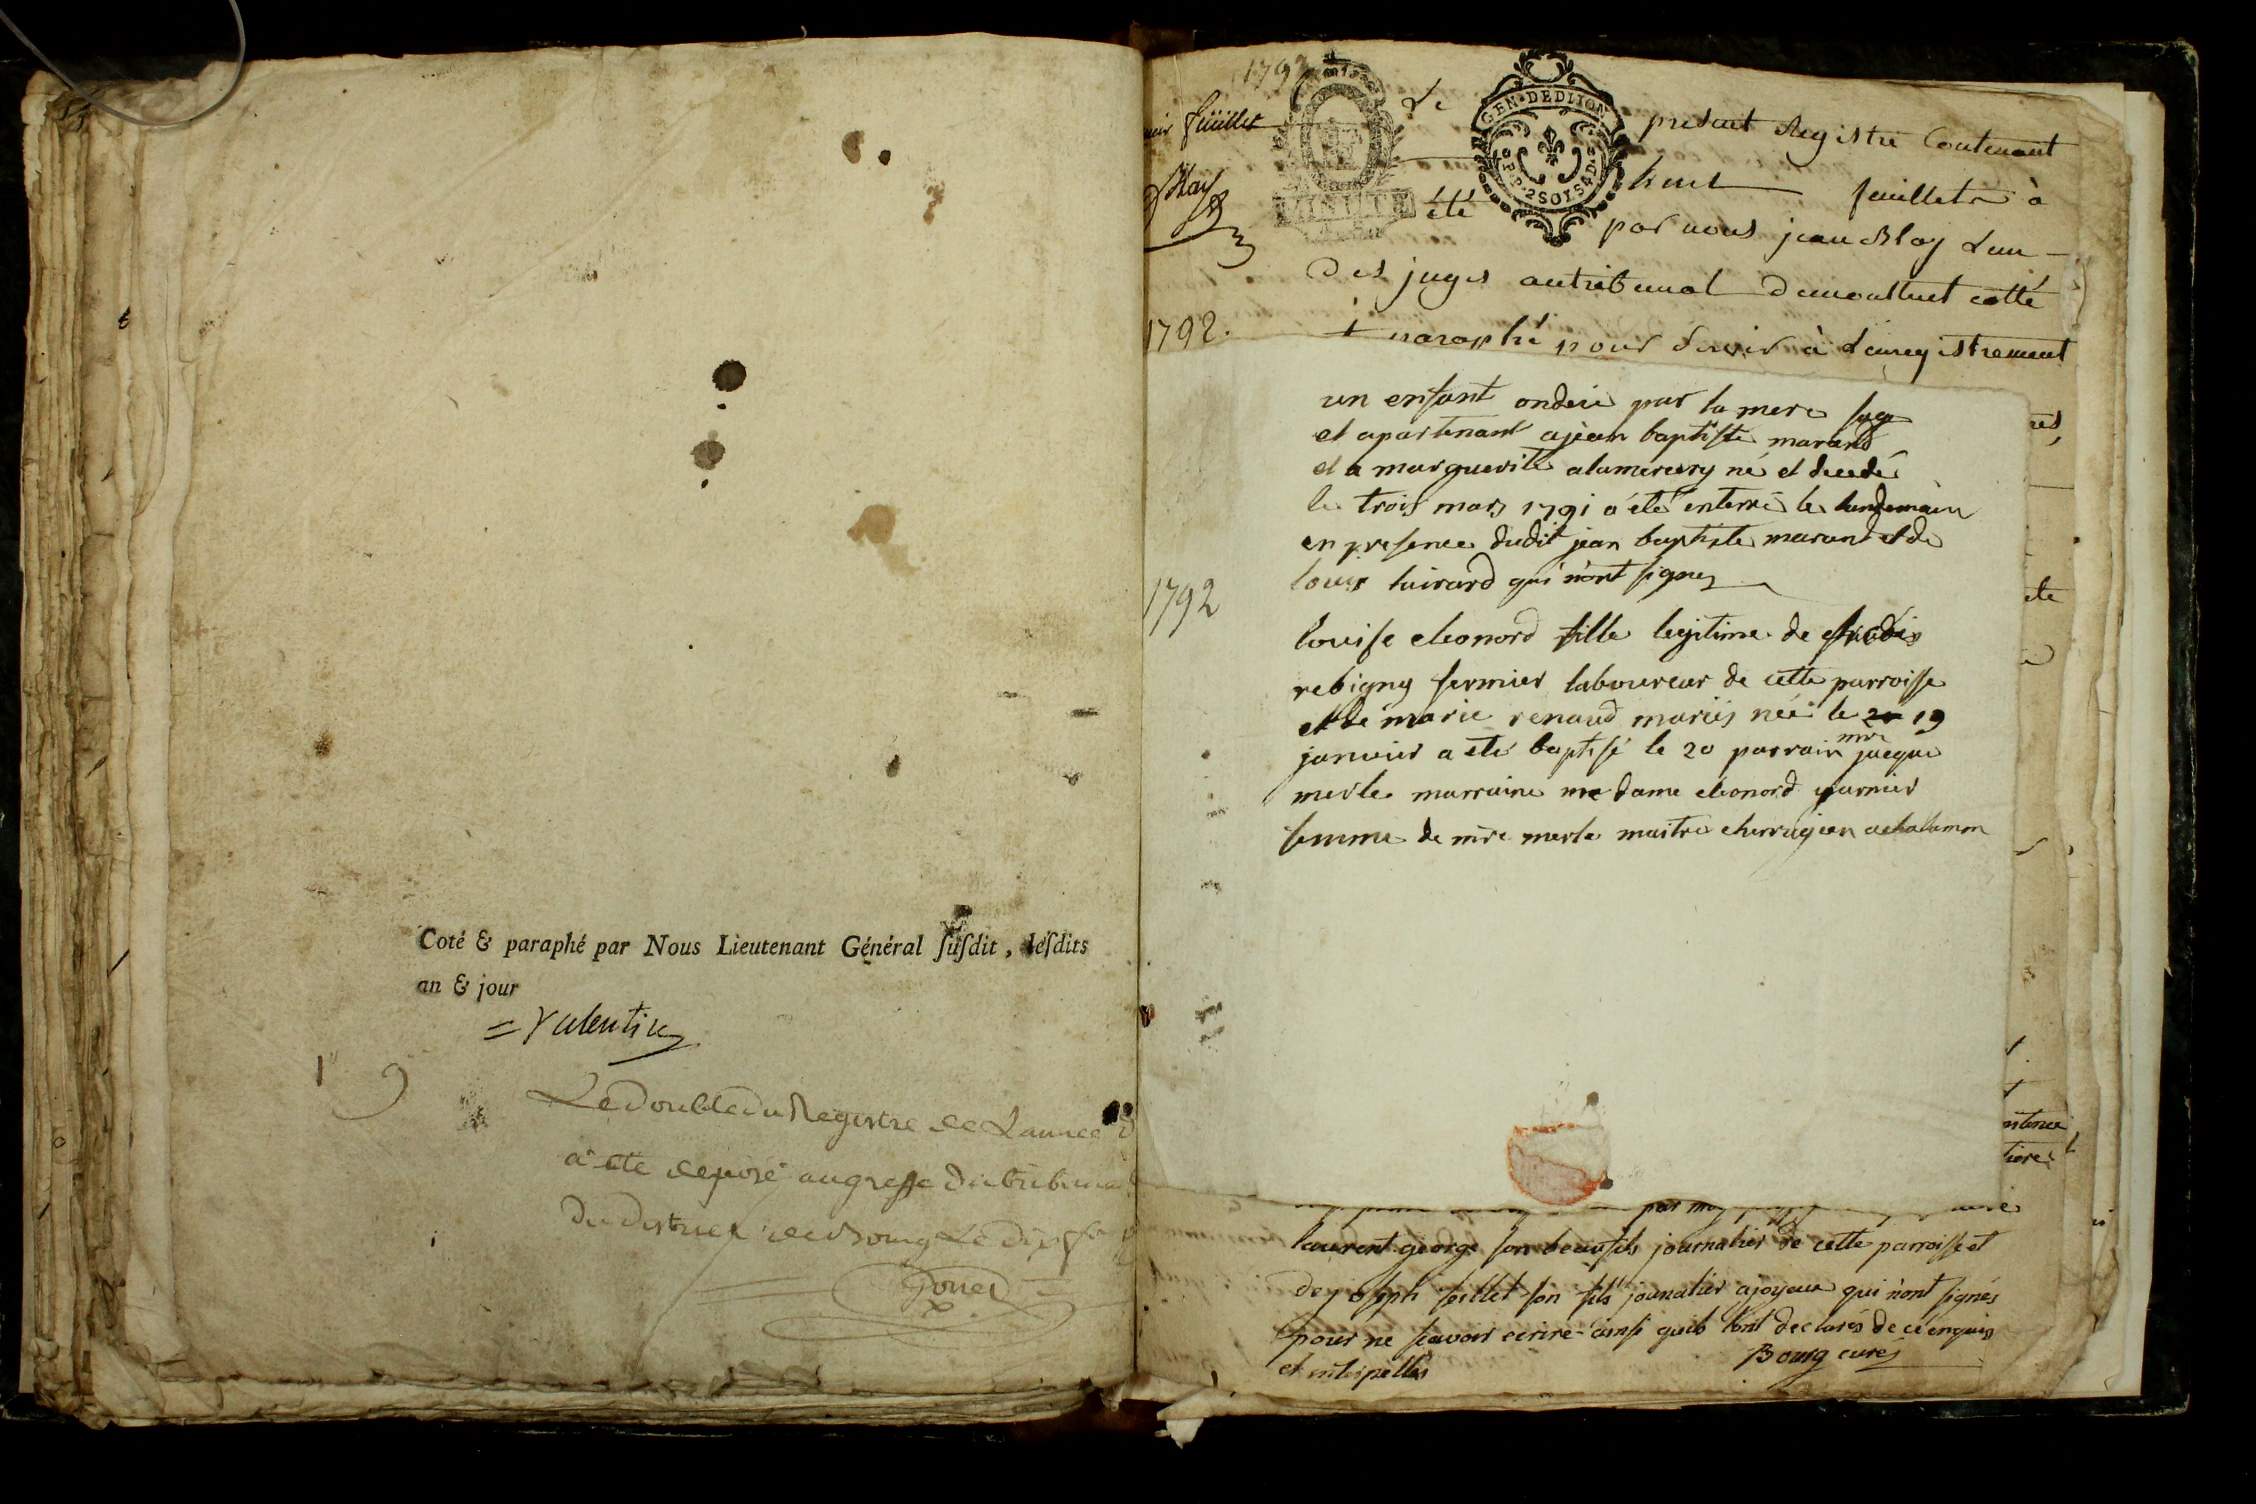 Coté & paraphé par Nous Lieutenant Général ſuſdit, leſdits
an & jour
Valentin
Le Double du Registre de L'année
a été deposé au greffe du tribunal
du district de Bourg Le dix
1792
feüillet
Le present Registre Contenant
huit feuillets à
GEN. DE DIJON
2 SOLS 4 D.
été par nous jean Blay L'un
des juges au tribunal de montluel cotté
1792.
& paraphé pour servir à L'enregistrement
un enfant ondoié par la mere sage
et apartenant a jean baptiste marand
et a marguerite alamercery né et decedé
le trois mars 1791 a été enterré le lendemain
en presence dudit jean baptiste marand et de
louis luirard qui n'ont signez
1792
louise eleonord fille legitime de
rebigny fermier laboureur de cette parroisse
et de marie renaud mariés née le 20 19
janvier a eté baptisé le 20 parrain mre jacque
merle marraine madame eleonord garnier
femme de mre merle maitre chirrugien a chalamon
par moy
laurent george son beaufils journalier de cette parroisse et
de joseph feillet son fils jounalier a joyeux qui n'ont signés
pour ne scavoir ecrire ainsi quils l'ont declarés de ce enquis
et interpellés
Bourg curé